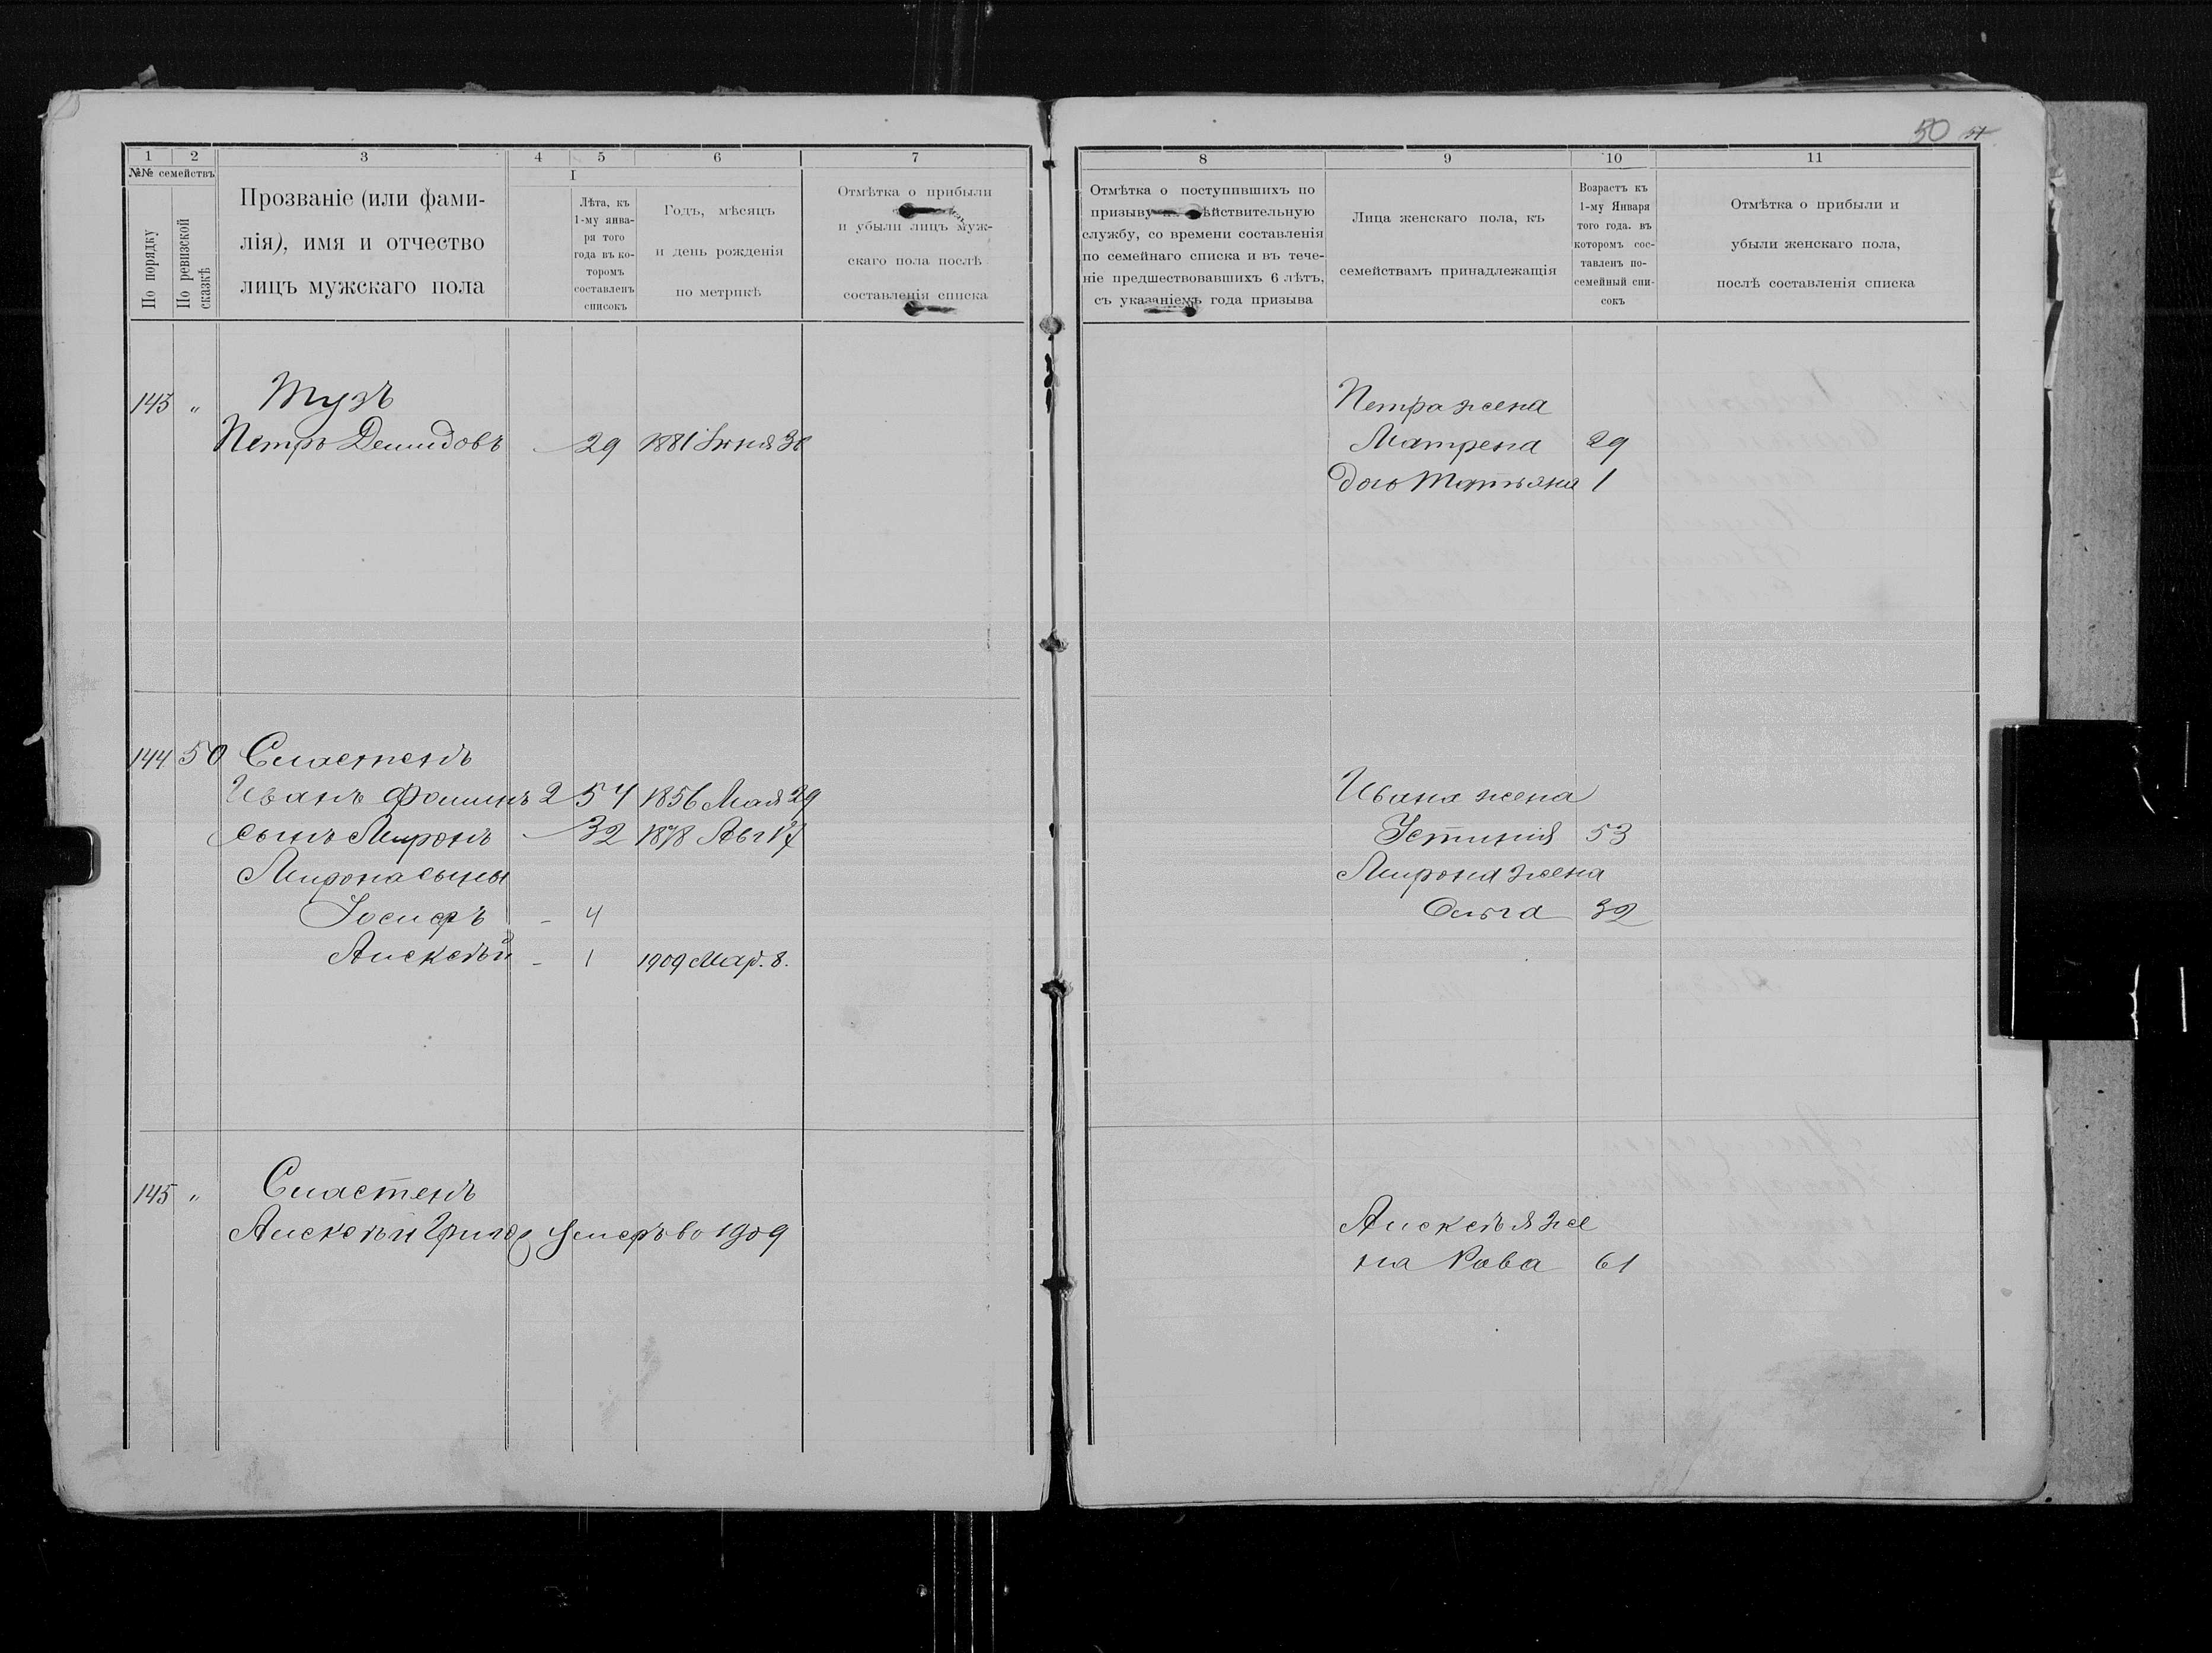 50 51
1 2 3 4 5 6 7
№№ семействъ
По порядку
По ревизской сказкѣ
Прозваніе (или фами-
лія), имя и отчество
лицъ мужскаго пола
I
Лѣта, къ
1-му янва-
ря того
года въ ко-
торомъ
составленъ
списокъ
Годъ, мѣсяцъ
и день рожденія
по метрикѣ
Отмѣтка о прибыли
и убыли лицъ муж-
скаго пола послѣ
составленія списка
143 " Тузъ
Петръ Демидовъ - 29 1881 Іюня 30
144 50 Сластенъ
Иванъ Фоминъ 2 54 1856 Мая 29
сынъ Миронъ - 32 1878 Авг 17
Мирона сыны
Іосифъ - 4
Алексѣй - 1 1909 Мар. 8.
145 " Сластенъ
Алексѣй Григор умеръ во 1909
8 9 10 11
Отмѣтка о поступившихъ по
призыву на дѣйствительную
службу, со времени составленія
по семейнаго списка и въ тече-
ніе предшествовавшихъ 6 лѣтъ,
съ указаніемъ года призыва
Лица женскаго пола, къ
семействамъ принадлежащія
Возрастъ къ
1-му Января
того года. въ
которомъ сос-
тавленъ по-
семейный спи-
сокъ
Отмѣтка о прибыли и
убыли женскаго пола,
послѣ составленія списка
Петра жена
Матрена 29
дочь Татьяна 1
Ивана жена
Устинія 53
Мирона жена
Ольга 32
Алексѣя же
на 61